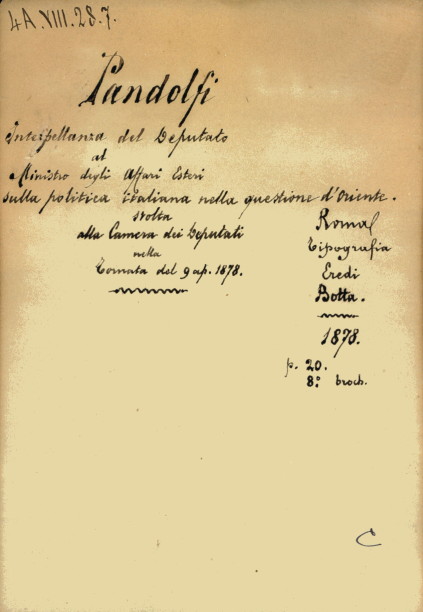 4A.VIII.28.7.
Pandolfi
Interpellanza del Deputato
al
Ministro degli Affari Esteri
sulla politica italiana nella questione d'Oriente.
svolta
alla Camera dei Deputati
nella
Tornata del 9 ap. 1878.
Roma
Tipografia
Eredi
Botta.
1878.
p. 20.
8º broch.
C